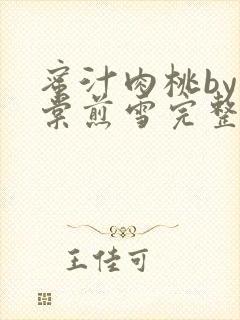 蜜汁肉桃by
棠煎雪完整
王佳可